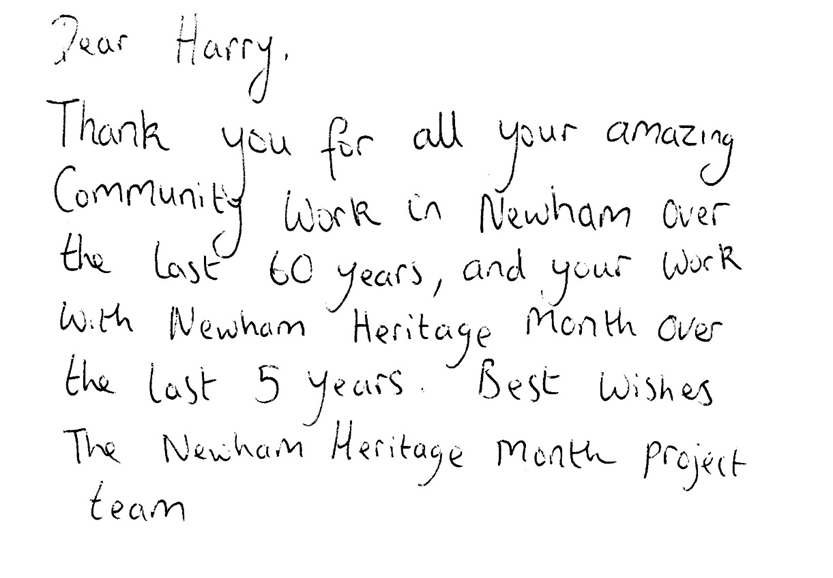 Dear Harry.
Thank you for all your amazing
Community Work in Newham over
the last 60 years, and your work
with Newham Heritage Month over
the last 5 years. Best wishes
The Newham Heritage Month project
team